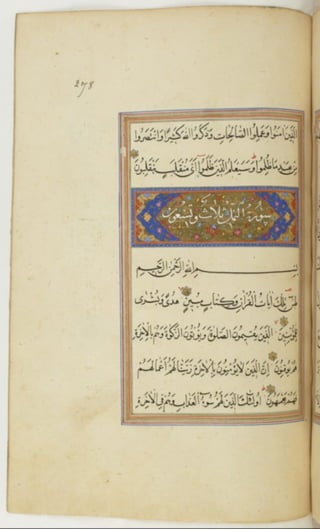 278
الذين امنوا وعملوا الصالحات وذكروا الله كثيرا وانتصروا
من بعد ما ظلموا وسيعلم الذين ظلموا اى منقلب ينقلبون
سورة النمل ثلاث وتسعون
بسم الله الرحمن الرحيم
طس تلك ايات القرآن وكتاب مبين هدى وبشرى
للمؤمنين الذين يقيمون الصلوة ويؤتون الزكوة وهم بالاخرة
هم يوقنون ان الذين لا يؤمنون بالاخرة زينا لهم اعمالهم
فهم يعمهون اولئك الذين لهم سوء العذاب وهم فى الاخرة